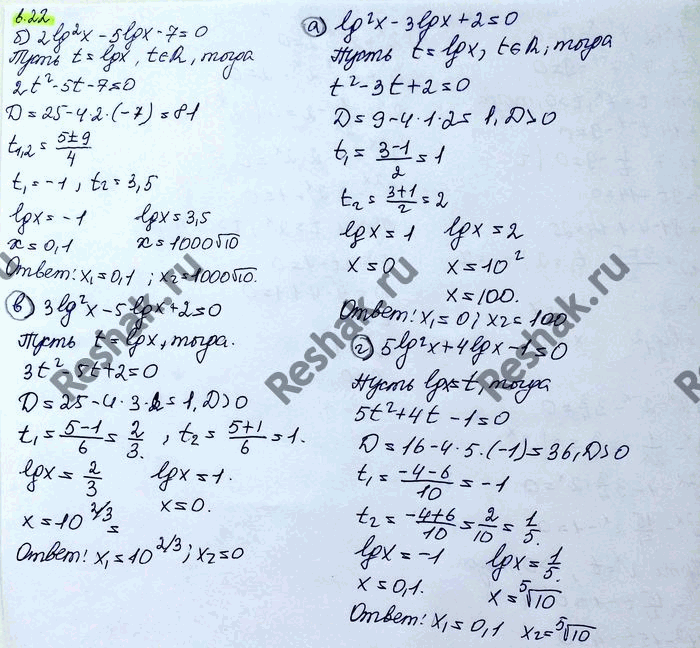 6.22
б) 2lg²x - 5lgx - 7 = 0
Пусть t = lgx, t∈R, тогда
2t² - 5t - 7 = 0
D = 25 - 4·2·(-7) = 81
t₁,₂ = (5±9)/4
t₁ = -1, t₂ = 3,5
lgx = -1 lgx = 3,5
x = 0,1 x = 1000√10
Ответ: x₁ = 0,1 ; x₂ = 1000√10.
в) 3lg²x - 5lgx + 2 = 0
Пусть t = lgx, тогда.
3t² - 5t + 2 = 0
D = 25 - 4·3·2 = 1, D>0
t₁ = (5-1)/6 = 2/3. , t₂ = (5+1)/6 = 1.
lgx = 2/3 lgx = 1.
x = 10^(2/3) = x = 0.
Ответ: x₁ = 10^(2/3); x₂ = 0
а) lg²x - 3lgx + 2 = 0
Пусть t = lgx, t∈R, тогда
t² - 3t + 2 = 0
D = 9 - 4·1·2 = 1, D>0
t₁ = (3-1)/2 = 1
t₂ = (3+1)/2 = 2
lgx = 1 lgx = 2
x = 0 x = 10²
x = 100.
Ответ: x₁ = 0; x₂ = 100
г) 5lg²x + 4lgx - 1 = 0
Пусть lgx = t, тогда
5t² + 4t - 1 = 0
D = 16 - 4·5·(-1) = 36, D>0
t₁ = (-4-6)/10 = -1
t₂ = (-4+6)/10 = 2/10 = 1/5.
lgx = -1 lgx = 1/5.
x = 0,1. x = ⁵√10
Ответ: x₁ = 0,1 x₂ = ⁵√10
Reshak.ru
Reshak.ru
Reshak.ru